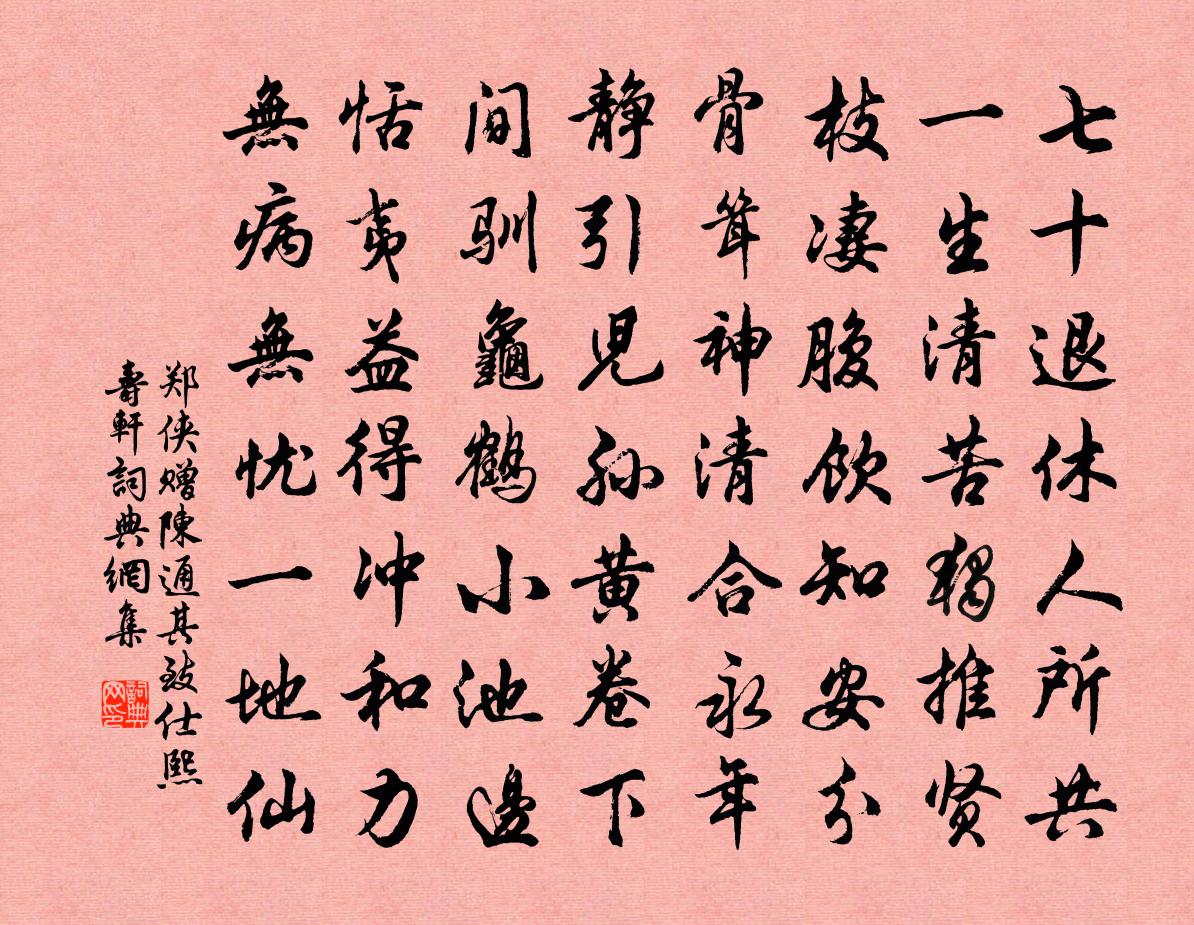 七十退休人所共
一生清苦獨推贤
枝凄腹饮知安分
骨耸神清合永年
静引児孙黄卷下
间驯龜鹤小池邊
恬夷益得冲和力
無病無忧一地仙
郑侠赠陳通其致仕熙
壽軒詞典網集
詞典网印